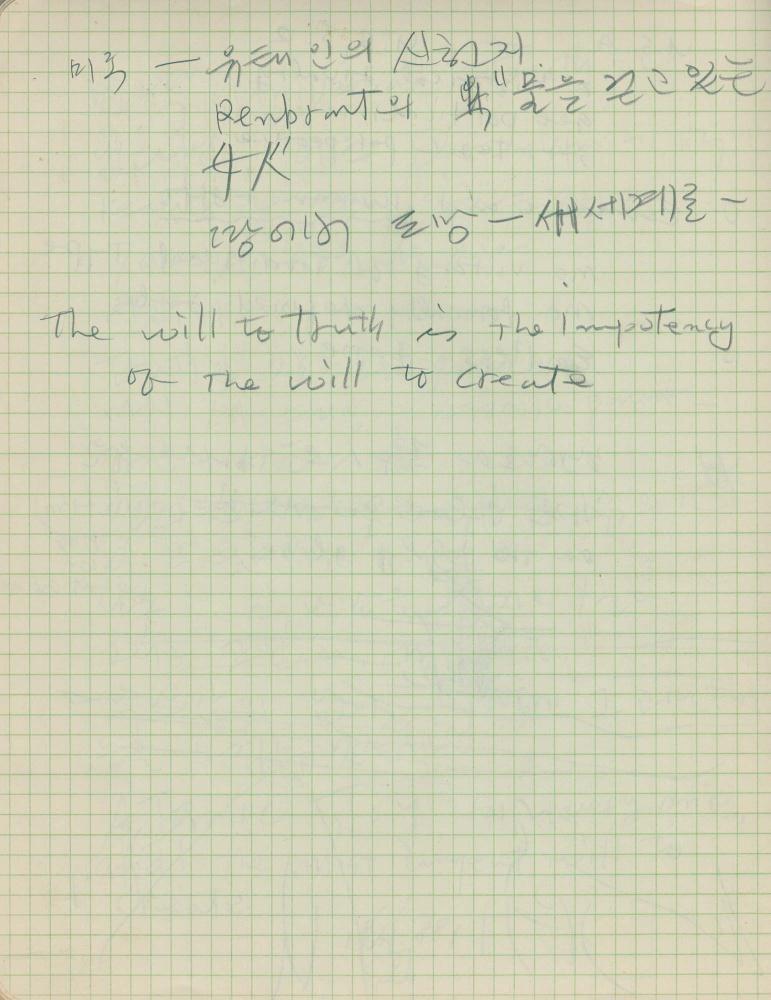 미국 — 유태인의 실험지
Renbrant의 물을 걷고 있는
땅에서 도망 — 세세계로 —
The will to truth is the impotency
of The will to create